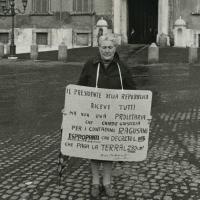 IL PRESIDENTE DELLA REPUBBLICA
RICEVE TUTTI
MA NON UNA PROLETARIA
CHE CHIEDE GIUSTIZIA
PER I CONTADINI RAGUSANI
ESPROPRIATI CON DECRETO L.
CHE PAGA LA TERRA L.